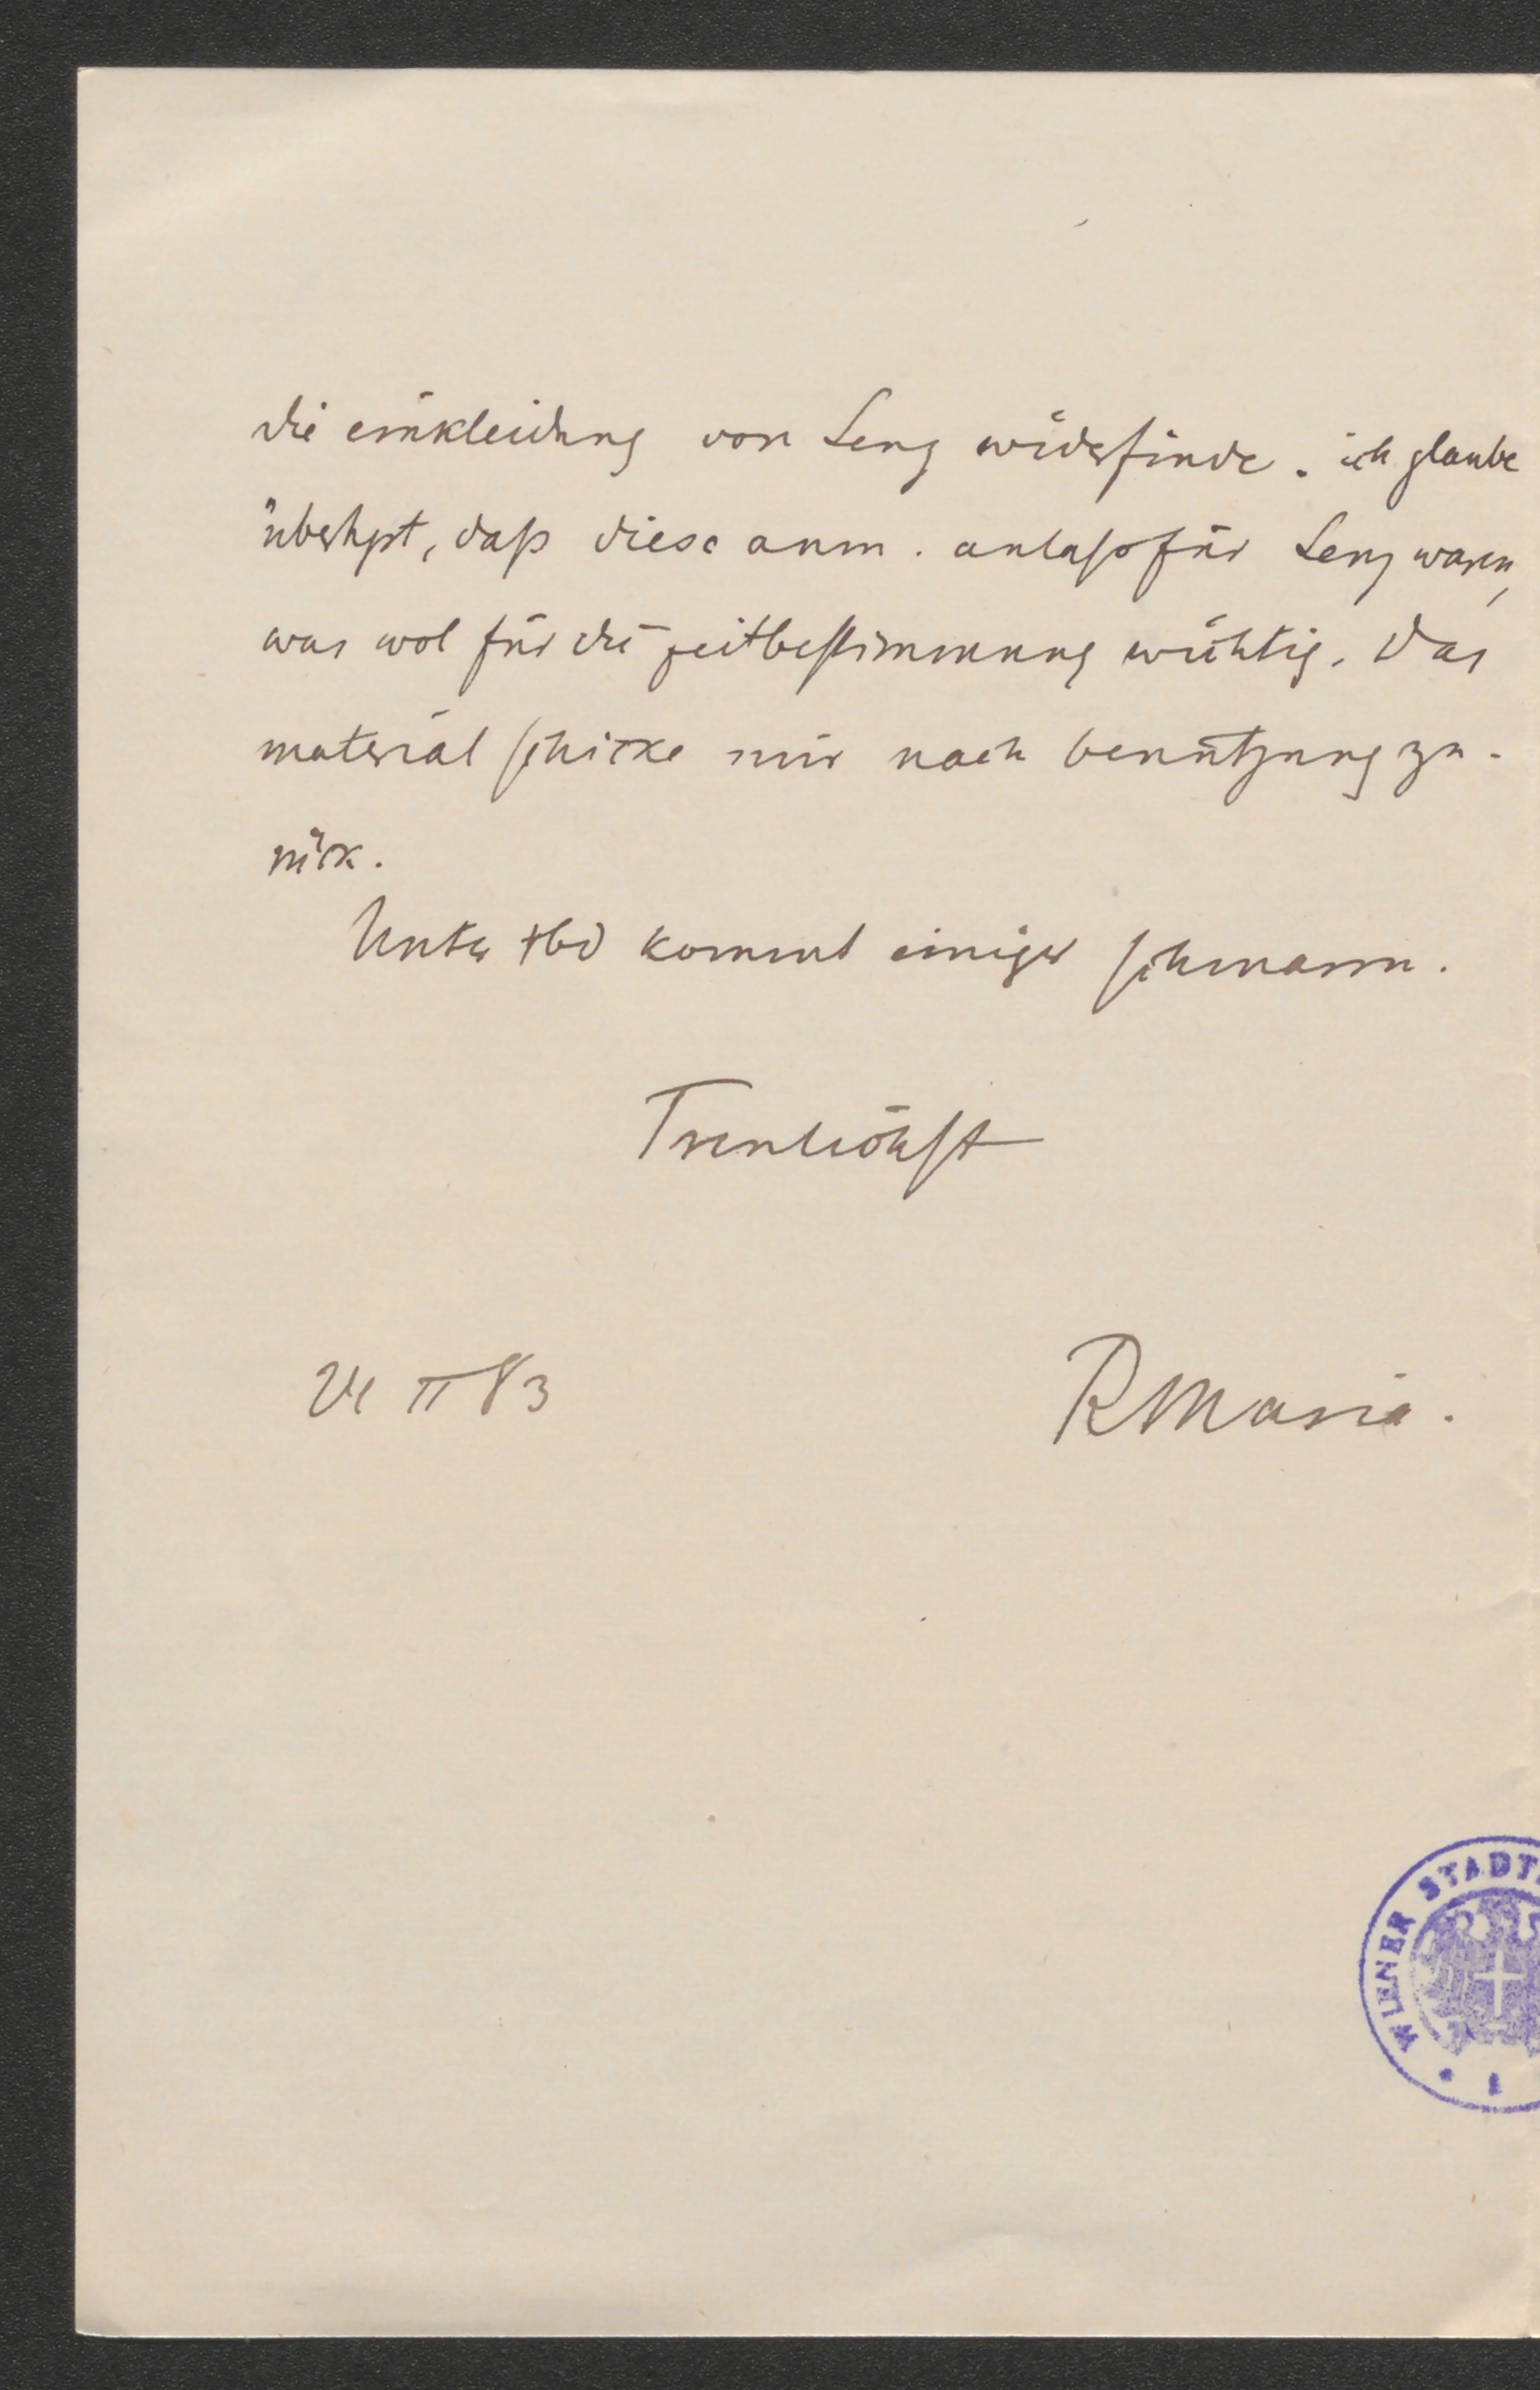 die einkleidung von Lenz widerfinde. ich glaube
überhpt, daß diese anm. anlaß für Lenz waren,
was wol für die zeitbestimmung wichtig. Das
material schicke mir nach benützung zu-
rück.
Unter +bd kommt einiger schmarrn.
Treulichst
21 II 83
RMaria.
WIENER STADT